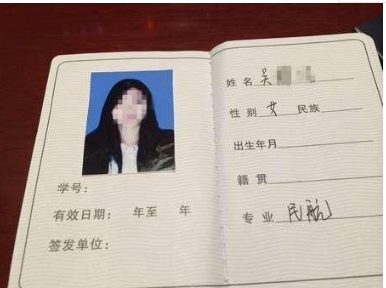 学号：
有效日期： 年至 年
签发单位：
姓 名 吴
性 别 女 民族
出生年月
籍 贯
专 业 民航